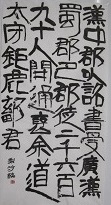 漢中郡以詔書受廣漢
蜀郡巴郡徒二千六百
九十人開通褒余道
太守鉅鹿鄐君